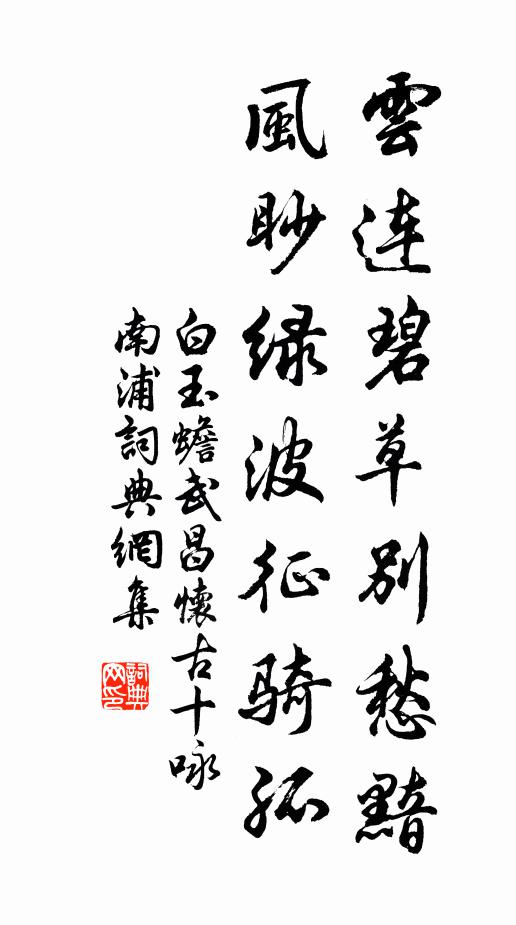 雲連碧草別愁黯
風眇綠波征騎孤
白玉蟾武昌懷古十咏
南浦詞典網集
詞典網印